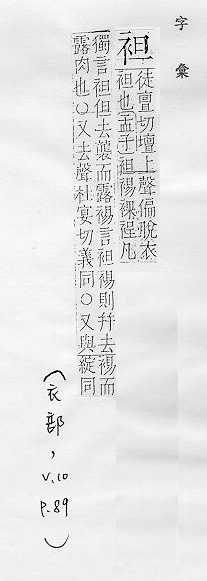 字彙
袒徒亶切壇上聲偏脫衣
袒也(孟子)袒裼裸裎凡
獨言袒但去襲而露裼言袒裼則幷去裼而
露肉也○又去聲杜宴切義同○又與綻同
(衣部,
V.10
P.89
)